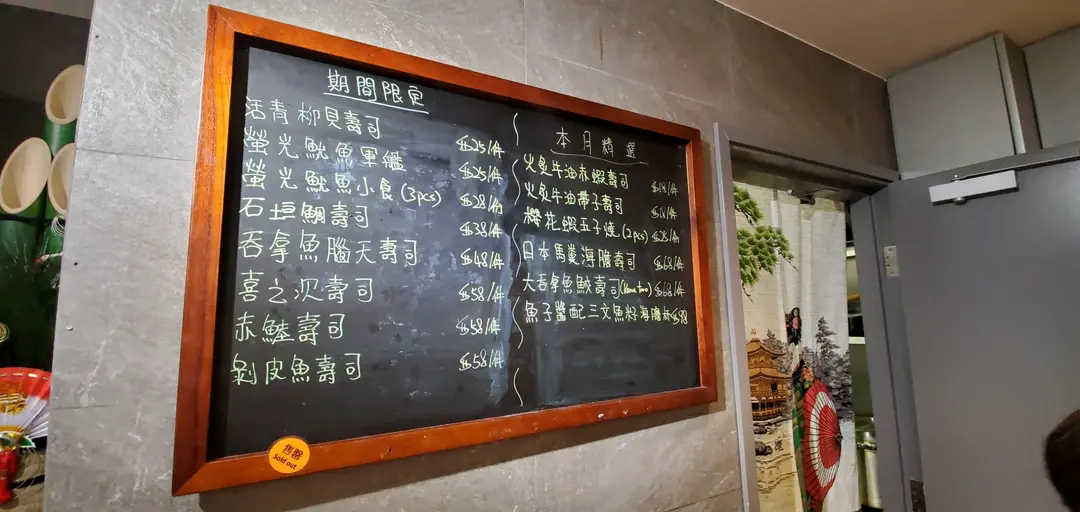 期間限定
活青柳貝壽司 $25/件
螢光魷魚軍艦 $25/件
螢光魷魚小食(3pcs) $28/份
石垣鯛壽司 $38/件
吞拿魚腦天壽司 $48/件
喜之次壽司 $58/件
赤鯥壽司 $58/件
剝皮魚壽司 $58/件
本月精選
火炙牛油赤蝦壽司 $18/件
火炙牛油帶子壽司 $18/件
櫻花蝦玉子燒(2pcs) $25/件
日本馬糞海膽壽司 $68/件
大吞拿魚鮫壽司 $68/件
魚子醬配三文魚籽海膽杯 $98
售罄
Sold out